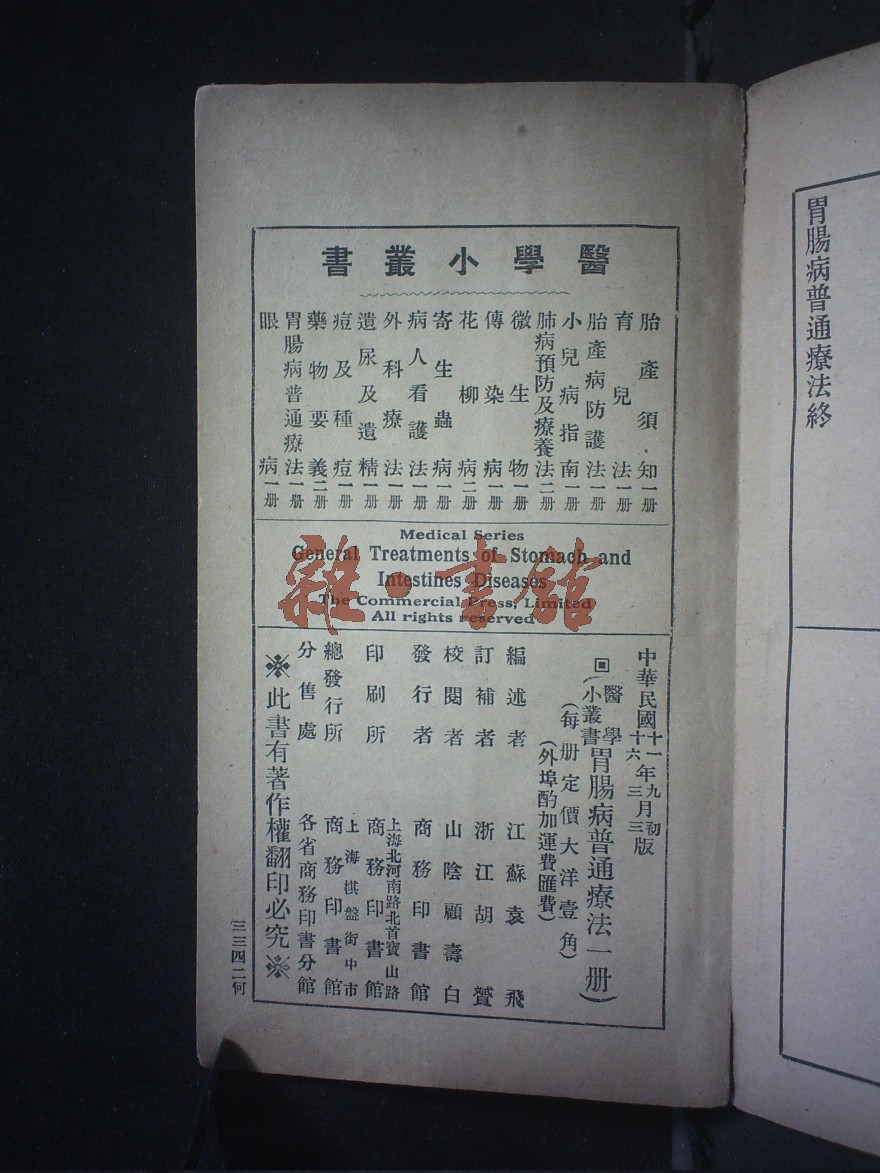 胃腸病普通療法終
醫學小叢書
胎產須知一册
育兒法一册
胎產病防護法一册
小兒病指南一册
肺病預防及療養法二册
微生物一册
傳染病一册
花柳病二册
寄生蟲病一册
病人看護法一册
外科療法一册
遺尿及遺精一册
痘及種痘一册
藥物要義二册
胃腸病普通療法一册
眼病一册
Medical Series
General Treatments of Stomach and
Intestines Diseases
The Commercial Press, Limited
All rights reserved
雜·書館
中華民國十一年九月初版
十六 三 三
回(醫學小叢書胃腸病普通療法一册)
(每册定價大洋壹角)
(外埠酌加運費匯費)
編述者 江蘇袁飛
訂補者 浙江胡贇
校閱者 山陰顧壽白
發行者 商務印書館
印刷所 上海北河南路北首寶山路 商務印書館
總發行所 上海棋盤街中市 商務印書館
分售處 各省商務印書分館
※此書有著作權翻印必究※
三三四二何